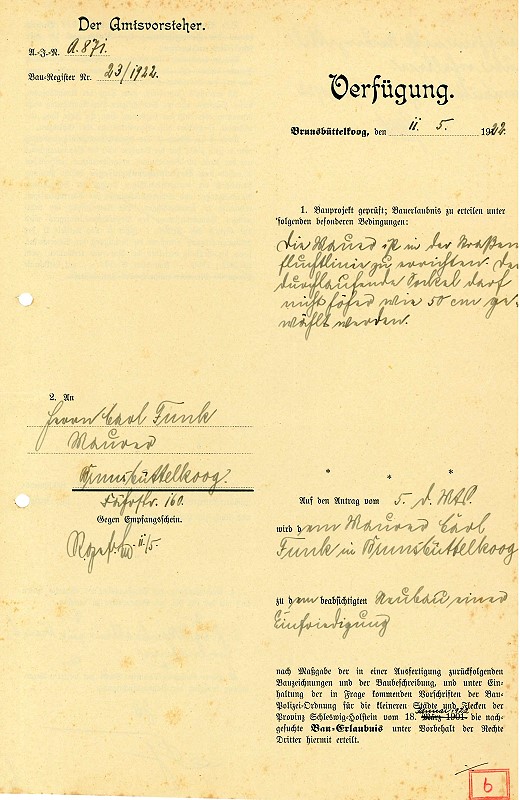 Der Amtsvorsteher.
A.-J.-N. A. 871.
Bau-Register Nr. 23/1922.
Verfügung.
Brunsbüttelkoog, den 11. 5. 1922.
1. Bauprojekt geprüft; Bauerlaubnis zu erteilen unter
folgenden besonderen Bedingungen:
Die Mauer ist in der Straßen
fluchtlinie zu errichten. Der
durchlaufende Sockel darf
nicht höher wie 50 cm ge-
wählt werden.
2. An
Herrn Carl Funk
Maurer
Brunsbüttelkoog.
Fährstr. 160.
Gegen Empfangschein.
11/5.
* * *
Auf den Antrag vom 5. d. Mts.
wird dem Maurer Carl
Funk in Brunsbüttelkoog
zu dem beabsichtigten Neubau einer
Einfriedigung
nach Maßgabe der in einer Ausfertigung zurückfolgenden
Bauzeichnungen und der Baubeschreibung, und unter Ein-
haltung der in Frage kommenden Vorschriften der Bau-
Polizei-Ordnung für die kleineren Städte und Flecken der
Provinz Schleswig-Holstein vom 18. März 1901 die nach-
gesuchte Bau-Erlaubnis unter Vorbehalt der Rechte
Dritter hiermit erteilt.
6